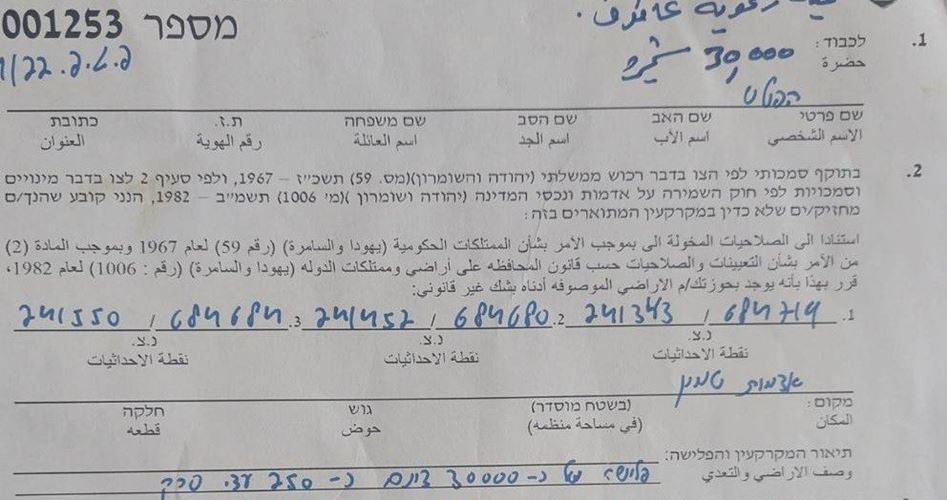 מספר 001253
1. לכבוד:
حضرة 30,000
שם פרטי שם האב שם הסב שם משפחה ת.ז. כתובת
الاسم الشخصي اسم الأب اسم الجد اسم العائلة رقم الهوية العنوان
2. בתוקף סמכותי לפי הצו בדבר רכוש ממשלתי (יהודה והשומרון)(מס. 59) תשכ״ז – 1967, ולפי סעיף 2 לצו בדבר מינויים
וסמכויות לפי חוק השמירה על אדמות ונכסי המדינה (יהודה ושומרון )(מי 1006) תשמ״ב – 1982, הנני קובע שהנך/ם
מחזיק/ים שלא כדין במקרקעין המתוארים בזה:
استنادا الى الصلاحيات المخولة الى بموجب الأمر بشأن الممتلكات الحكومية (يهودا والسامرة) (رقم 59) لعام 1967 وبموجب المادة (2)
من الأمر بشأن التعيينات والصلاحيات حسب قانون المحافظه على أراضي وممتلكات الدوله (يهودا والسامرة) (رقم : 1006) لعام 1982،
قرر بهذا بأنه يوجد بحوزتك/م الاراضي الموصوفه أدناه بشك غير قانوني:
1. 684714 / 241343 2. 684680 / 241452 3. 684684 / 241550
נ.צ. נ.צ. נ.צ.
نقطة الاحداثيات نقطة الاحداثيات نقطة الاحداثيات
אדמות טמון
מקום: (בשטח מוסדר) גוש חלקה
المكان (في مساحة منظمه) حوض قطعه
תיאור המקרקעין והפלישה:
وصف الاراضي والتعدي פלישה של כ- 30000 כ- 250 עצי סרק